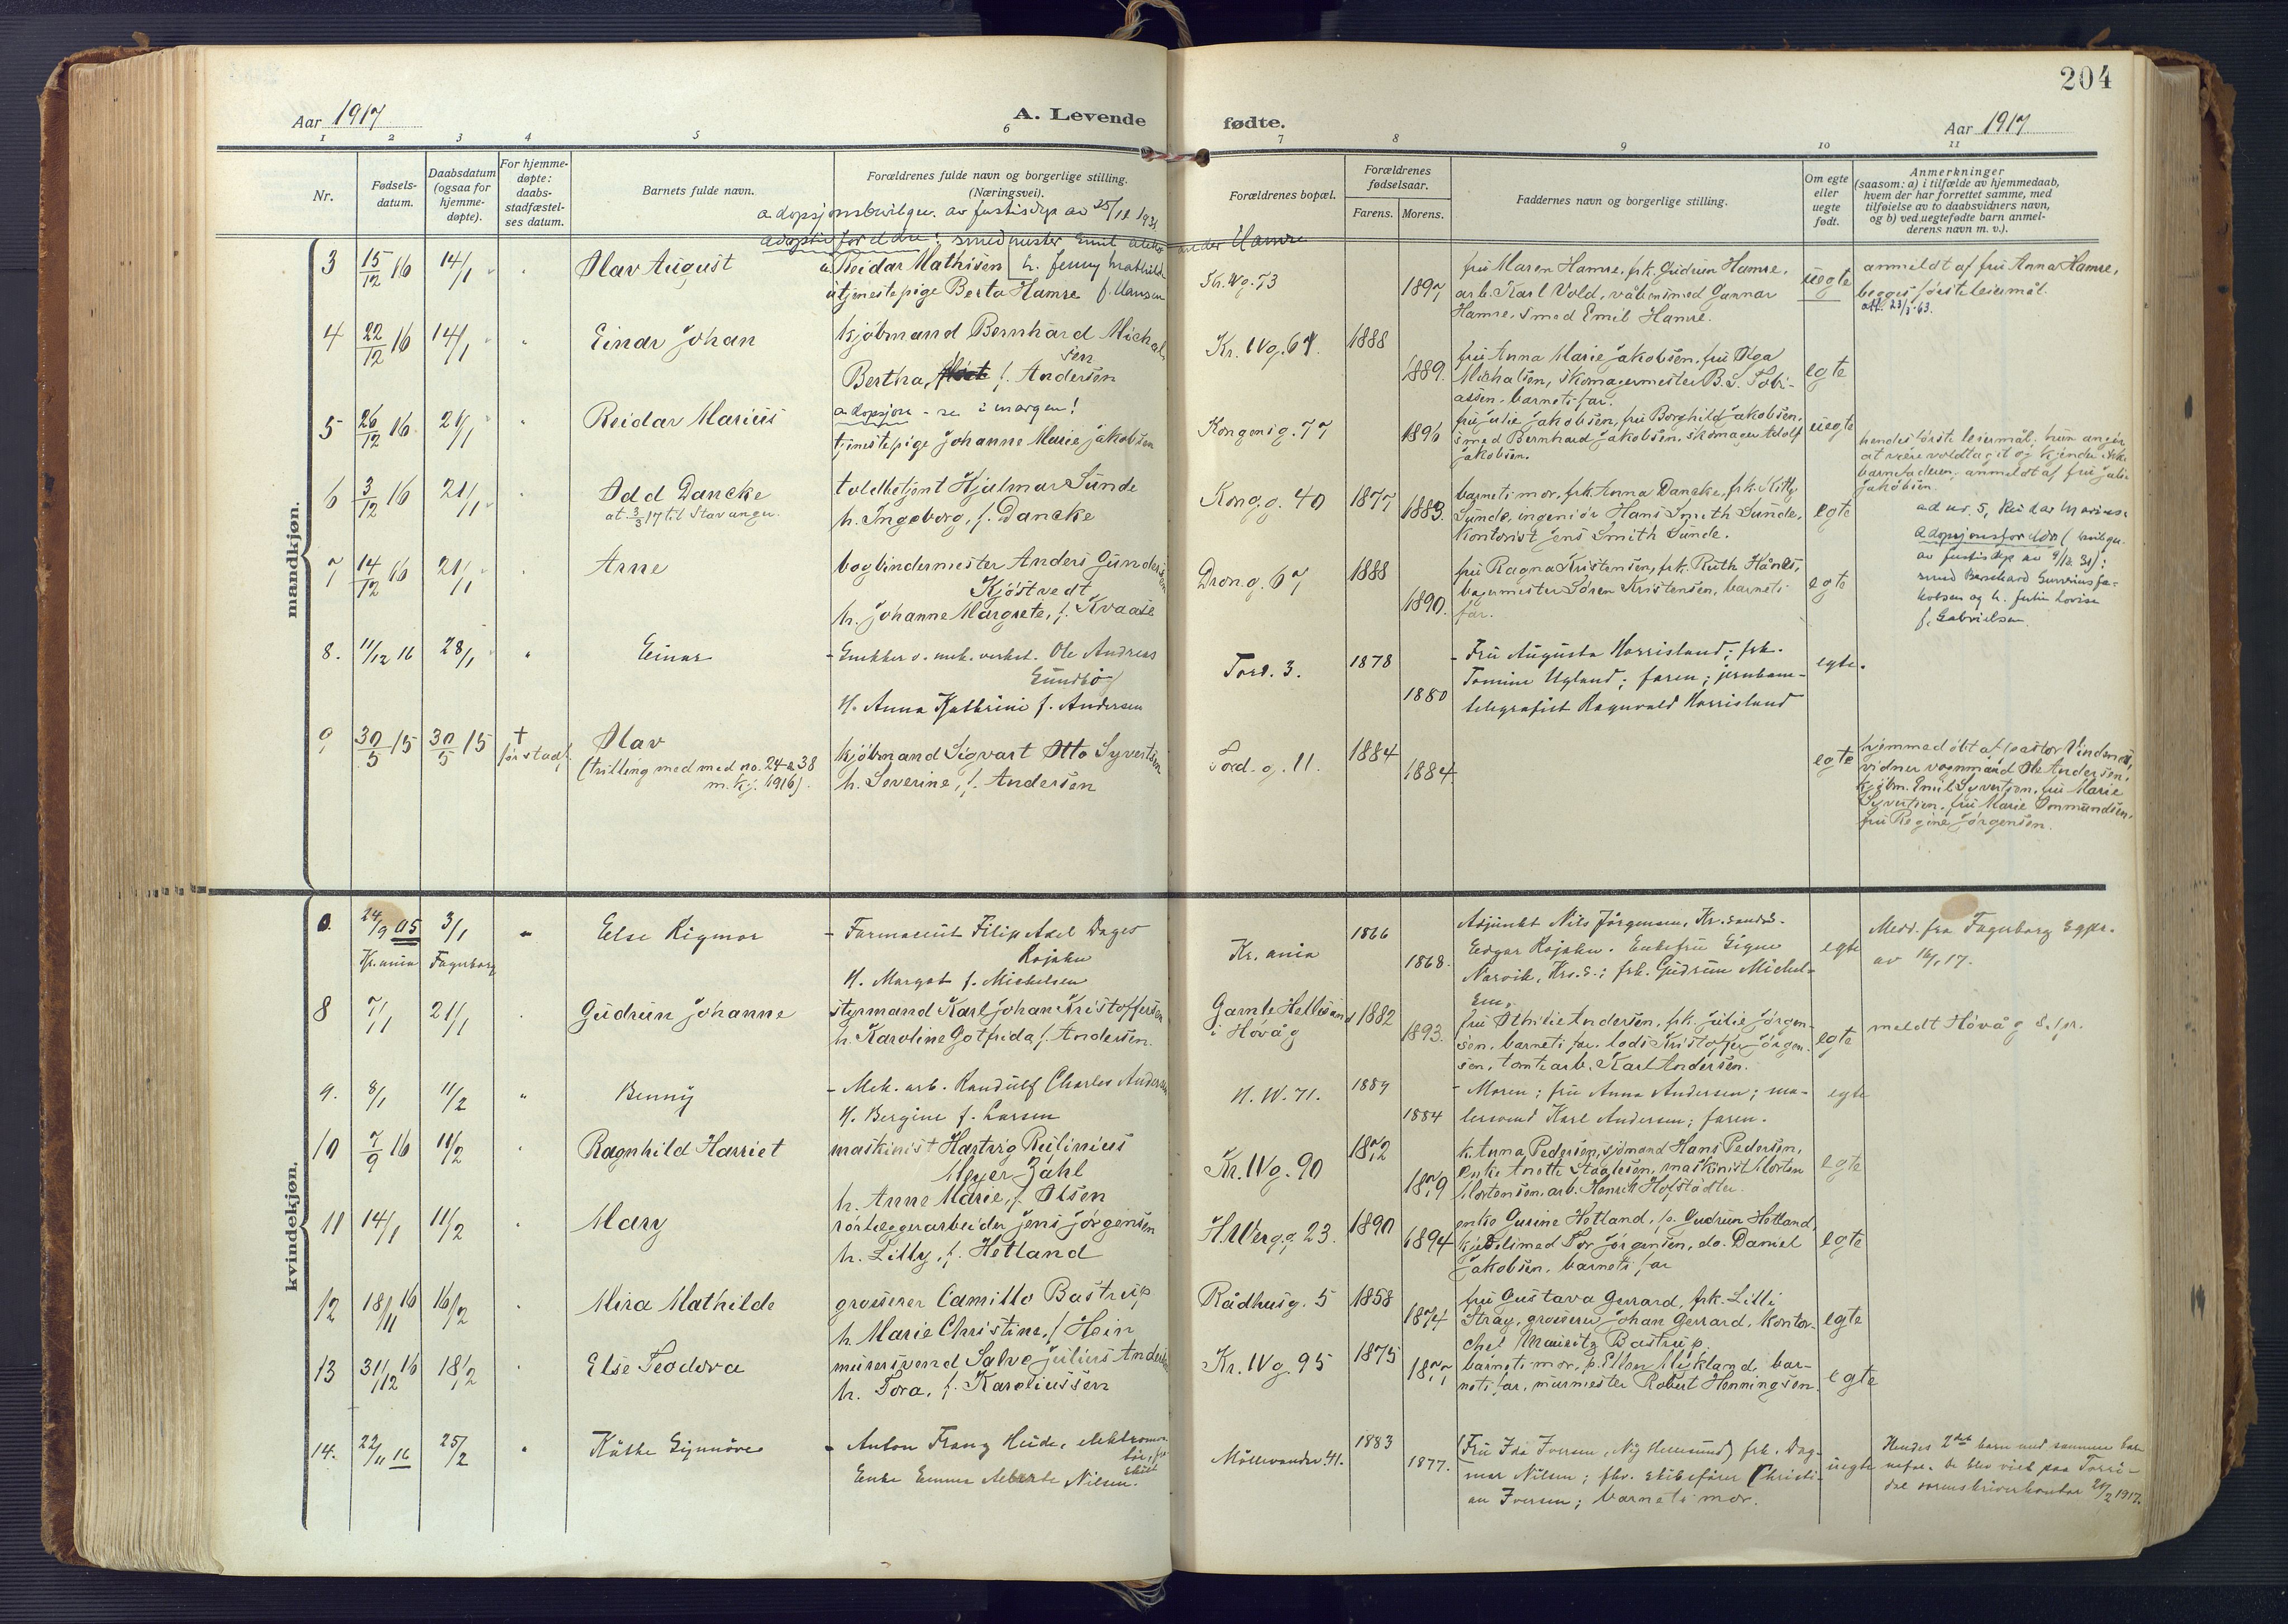 204
Aar 1917
A. Levende
fødte.
Aar 1917
1 2 3 4 5 6 7 8 9 10 11
Nr.
Fødsels-
datum.
Daabsdatum
(ogsaa for
hjemme-
døpte).
For hjemme-
døpte:
daabs-
stadfæstel-
ses datum.
Barnets fulde navn.
Forældrenes fulde navn og borgerlige stilling.
(Næringsvei).
Forældrenes bopæl.
Forældrenes
fødselsaar.
Farens. Morens.
Faddernes navn og borgerlige stilling.
Om egte
eller
uegte
født.
Anmerkninger
(saasom: a) i tilfælde av hjemmedaab,
hvem der har forrettet samme, med
tilføielse av to daabsvidners navn,
og b) ved uegtefødte barn anmel-
derens navn m. v.).
adopsjonsbevilgn. av justisdep av 25/11 1931
adoptivforeldre: smedmester Emil Alexander Hamre
h. Jenny Mathilde
f. Hansen
mandkjøn.
3 15/12 16 14/1 Olav August
Reidar Mathisen
tjenestepige Berta Hamre
Kr. IVg. 73
1897
fru Maren Hamre, frk. Gudrun Hamre,
arb. Karl Vold, våbensmed Gunnar
Hamre, smed Emil Hamre.
uegte
anmeldt af fru Anna Hamre,
begges første leiermål.
att. 23/1-63.
4 22/12 16 14/1 Einar Johan
kjøbmand Bernhard Michal
sen
Bertha, f. Andersen
Kr. IVg. 67. 1888
1889.
fru Anna Marie Jakobsen, fru Olga
Michalsen, skomagermester B. S. Tobi-
assen, barnets far.
egte
5 26/12 16 21/1 Reidar Marius
adopsjon - se i margen!
tjenestepige Johanne Marie Jakobsen
Kongensg. 77
1896
fru Julie Jakobsen, fru Borghild Jakobsen,
smed Bernhard Jakobsen, skomager Adolf
Jakobsen.
uegte
hendes første leiermål; hun angir
at være voldtaget og kjender ikke
barnefaderen. anmeldt af fru Julie
Jakobsen.
6 3/12 16 21/1 Odd Dancke
at. 3/3 17 til Stavanger.
toldbetjent Hjalmar Sunde
h. Ingeborg, f. Dancke
Kong.g. 40 1877
1883.
barnets mor, frk. Anna Dancke, frk. Kitty
Sunde, ingeniør Hans Smith Sunde,
kontorist Jens Smith Sunde.
egte
ad nr. 5, Reidar Marius:
Adopsjonsforeldre (bevilgn.
av justisdep av 9/12. 31):
smed Bernhard Ja-
kobsen og h. Julie Lovise
f. Gabrielsen.
7 14/12 16 21/1 Arne
bogbindermester Anders Gundersen
Kjøstvedt
h. Johanne Margrete, f. Kvaase
Dron.g. 67 1888
1890.
fru Ragna Kristensen, frk. Ruth Hånes,
bagermester Søren Kristensen, barnets
far.
egte
8. 11/12 16 28/1 Einar
- Snekker v. mek. verkst. Ole Andreas
Sundbø
H. Anna Kathrine f. Andersen
Tord. 3. 1878
1880
- Fru Augusta Harrisland; frk.
Tomine Ugland; faren; jernban-
telegrafist Ragnvald Harrisland
egte.
9 30/5 15 30/5 15 † før stadf.
Olav
(trilling med med no. 24 a 38
m.kj. 1916).
kjøbmand Sigvart Otto Syvertsen
h. Severine, f. Andersen
Tord. g. 11. 1884
1884
egte
hjemmedøbt af pastor Vindenes,
vidner vognmand Ole Andersen,
kjøbm. Emil Syvertsen, fru Marie
Syvertsen, fru Marie Ommundsen,
fru Regine Jørgensen.
kvindekjøn.
0. 24/9 05 3/1 Else Rigmor
Kr.ania Fagerborg
- Farmaceut Filip Axel Dages
Rojahn
H. Margot f. Michelsen
Kr. ania
1866
1868.
Adjunkt Nils Jørgensen, Kr.sands.
Edgar Rojahn. Enkefru Signe
Narvik, Krs.S.; frk. Gudrun Michel-
sen.
egte
Medd. fra Fagerborg sgpr.
av 16/1 17.
8 7/1 21/1 Gudrun Johanne
styrmand Karl Johan Kristoffersen
h. Karoline Gotfrida f. Andersen.
Gamle Hellesund
i Høvåg 1882
1893.
fru Othilie Andersen, frk. Julie Jørgen-
sen, barnets far, lods Kristoffer Jørgen-
sen, tomtearb. Karl Andersen.
egte
meldt Høvåg s.pr.
9. 8/1 11/2 Benny
- Mek. arb. Randulf Charles Andersen
H. Bergine f. Larsen
H. W. 71. 1889
1884
- Moren; fru Anna Andersen; ma-
lersvend Karl Andersen; faren.
egte
10 7/9 16 11/2 Ragnhild Harriet
maskinist Hartvig Reilinius
Meyer Zahl
h. Anne Marie, f. Olsen
Kr. IVg. 90 1872
1879
k. Anna Pedersen, sjømand Hans Pedersen,
enke Anette Staalesen, maskinist Morten
Mortensen, arb. Henrik Hofstådter.
egte
11 14/1 11/2 Mary
rørlæggerarbeider Jens Jørgensen
h. Lilly, f. Hetland
H.Werg.g. 23. 1890
1894
enke Gurine Hetland, p. Gudrun Hetland,
kjedelsmed Tor Jørgensen, do. Daniel
Jakobsen, barnets far
egte
12 18/11 16 16/2 Mira Mathilde
grosserer Camillo Bastrup
h. Marie Christine, f. Hein
Rådhusg. 5 1858
1874
fru Gustava Gerrard, frk. Lilli
Stray, grosserer Johan Gerrard, kontor-
chef Mauritz Bastrup.
egte
13 31/12 16 18/2 Else Teodora
murersvend Salve Julius Andersen
h. Tora, f. Karoliussen
Kr. IVg. 95 1875
1877
barnets mor, p. Ellen Mykland, bar-
nets far, murmester Robert Henningsen.
egte
14. 22/11 16 25/2 Käthe Synnøve
- Anton Franz Heide, elektromon-
tør,
Enke Emma Alberte Nilsen.
Møllevander. 41. 1883
1877.
(Fru Ida Iversen, Ny Hellesund) frk. Dag-
mar Nilsen; fhv. skibsfører Christi-
an Iversen; barnets mor.
uegte
Hendes 2det barn med samme bar
nefar. De blev viet paa Torri-
dal sorenskriverkontor 20/2 1917.